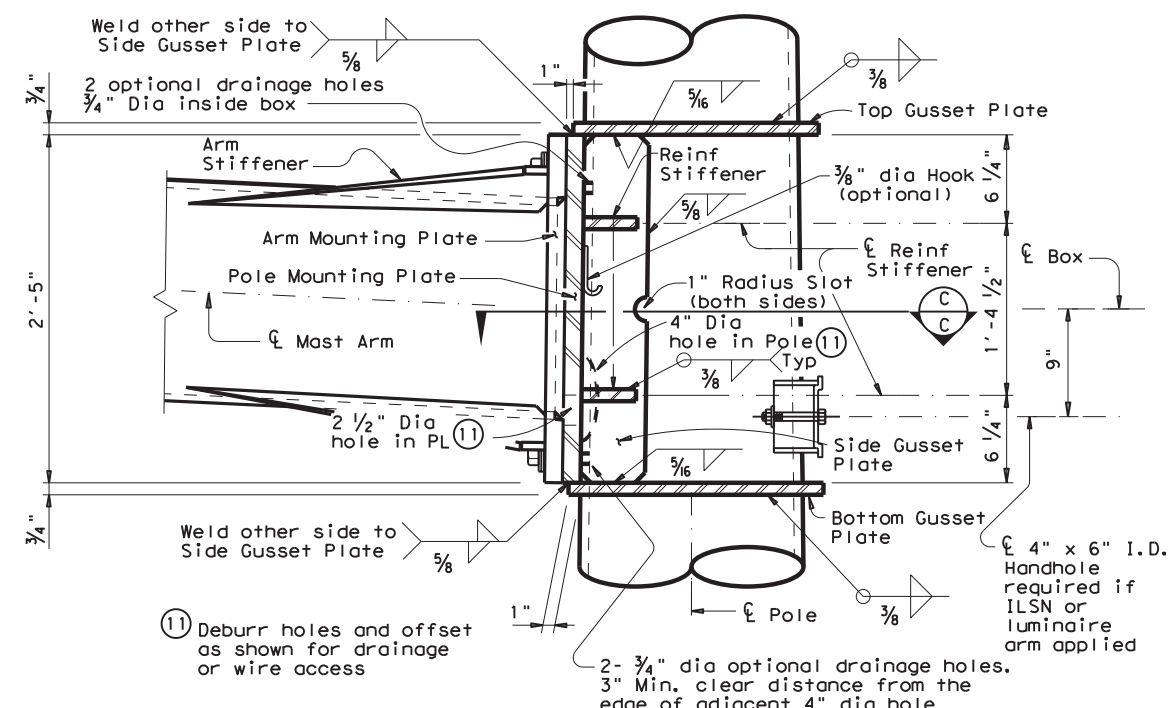 Weld other side to
Side Gusset Plate
5/8
2 optional drainage holes
3/4" Dia inside box
1"
5/16
3/8
Top Gusset Plate
3/4"
Arm
Stiffener
Reinf
Stiffener
3/8" dia Hook
(optional)
6 1/4"
5/8
Arm Mounting Plate
℄ Reinf
Stiffener
℄ Box
Pole Mounting Plate
1" Radius Slot
(both sides)
2'-5"
1'-4 1/2"
C
C
℄ Mast Arm
4" Dia
hole in Pole 11
Typ
3/8
9"
2 1/2" Dia
hole in PL 11
Side Gusset
Plate
6 1/4"
5/16
3/4"
Weld other side to
Side Gusset Plate
5/8
Bottom Gusset
Plate
℄ 4" x 6" I.D.
Handhole
required if
ILSN or
luminaire
arm applied
1"
℄ Pole
3/8
11 Deburr holes and offset
as shown for drainage
or wire access
2- 3/4" dia optional drainage holes.
3" Min. clear distance from the
edge of adjacent 4" dia hole